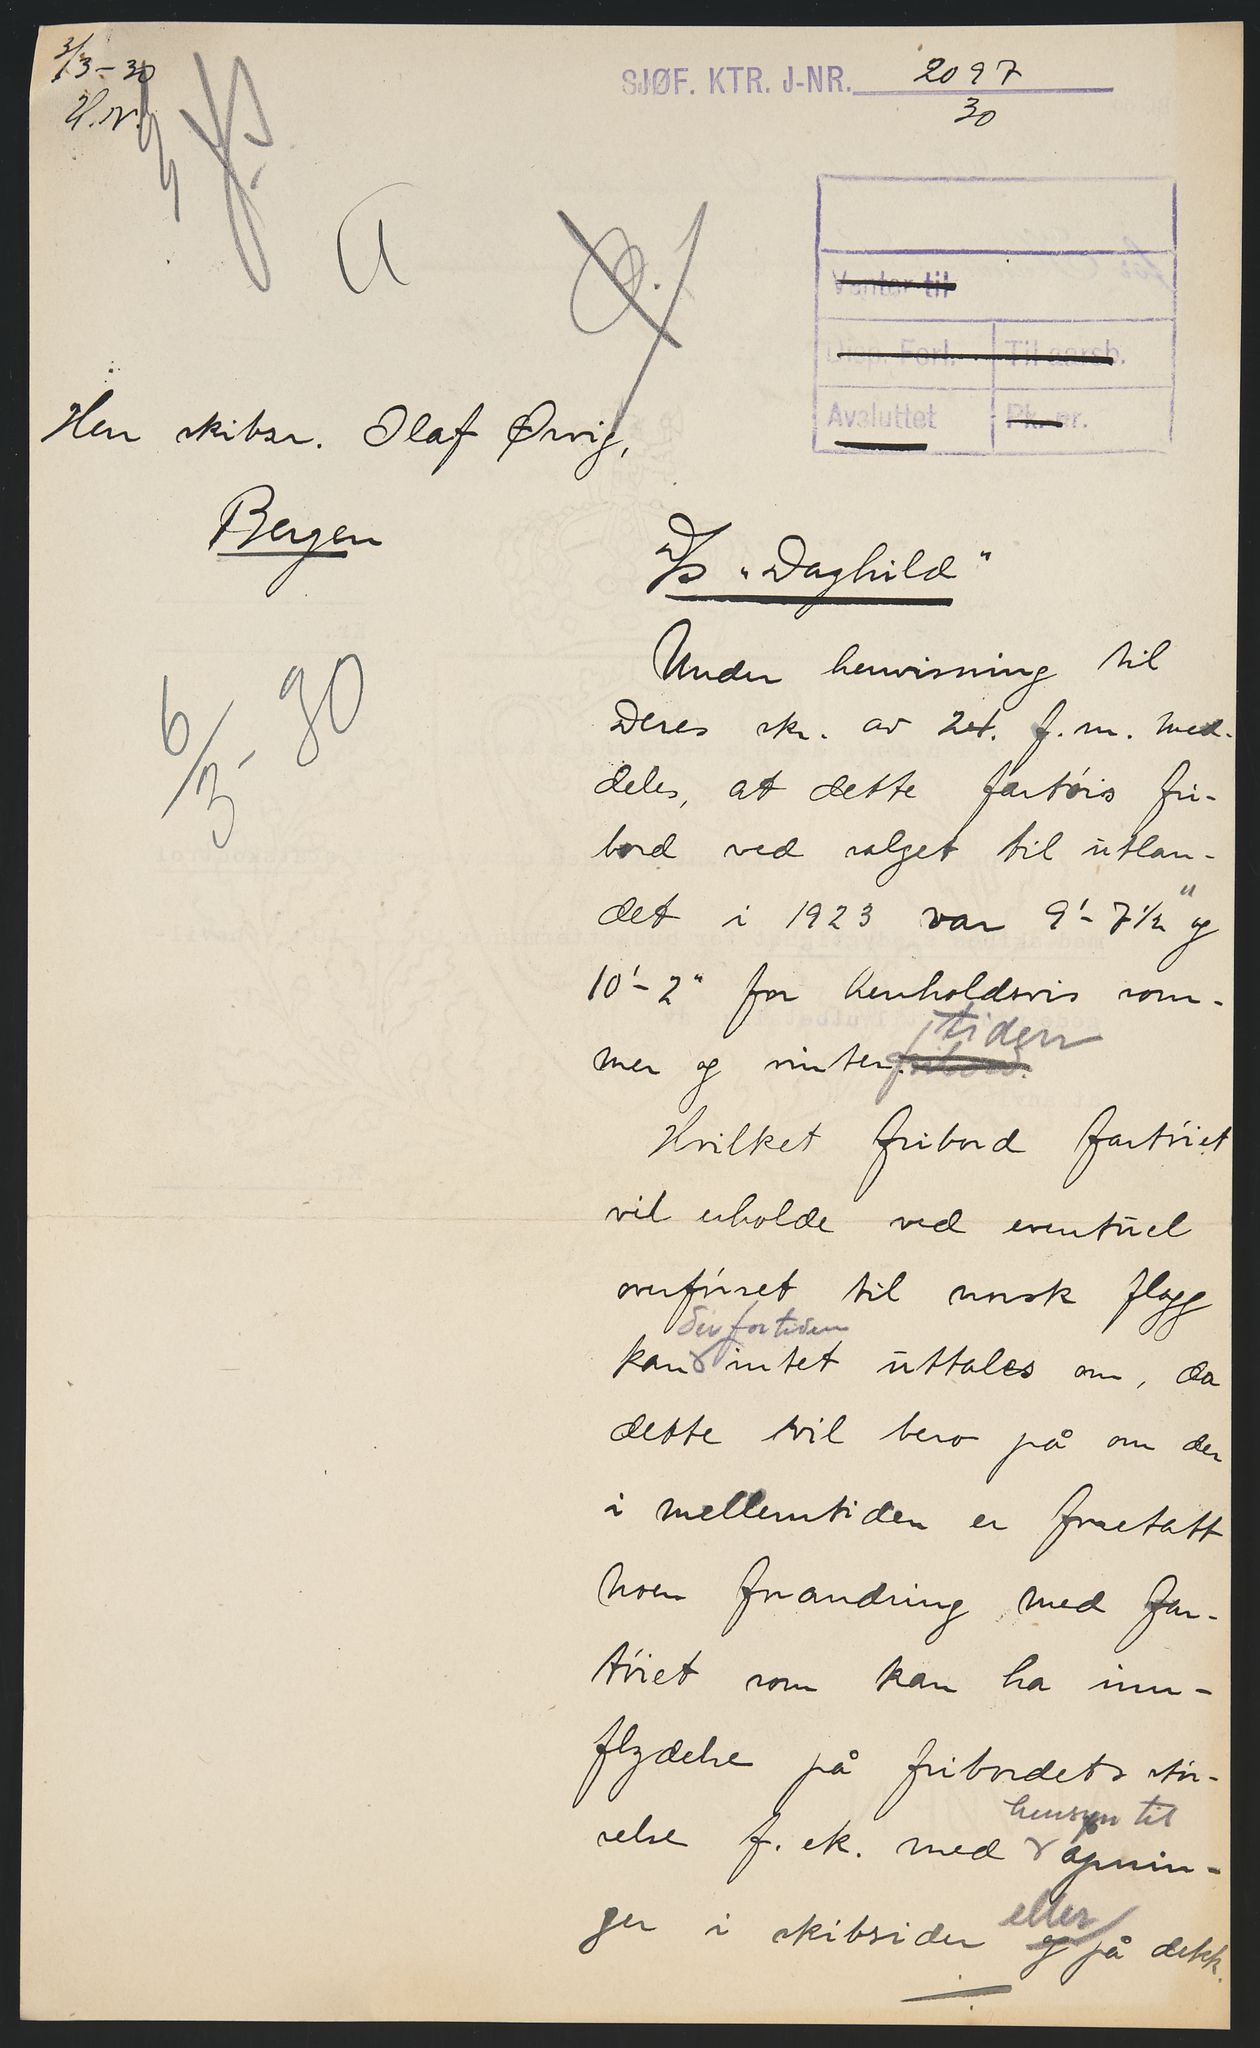 3/3-30
H.N.
SJØF. KTR. J-NR. 2097
30
a
Ø.
Venter til
Disp. Forl. Til aarsb.
Avsluttet Pk. nr.
Herr skibsr. Olaf Ørvig,
Bergen
D/S "Daghild"
6/3-30
Under henvisning til
Deres skr. av 24. f.m. med-
deles, at dette fartøis fri-
bord ved salget til utlan-
det i 1923 var 9'-7½" og
10'-2" for henholdsvis som-
tiden
mer og vinter fribord.
Hvilket fribord fartøiet
vil erholde ved eventuel
overføret til norsk flagg
der for tiden
kan intet uttales om, da
dette vil bero på om der
i mellemtiden er foretatt
noen forandring med far-
tøiet som kan ha inn-
flydelse på fribordets stør-
hensyn til
relse f. ek. med åpnin-
eller
ger i skibsider og på dekk.